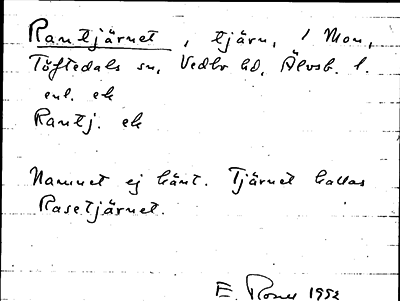 Rantjärnet, tjärn, / Mon,
Töftedals sn, Vedbo hd, Älvsb. l.
enl. ek
Rantj. ek
Namnet ej känt. Tjärnet kallas
Rasetjärnet.
E. 1952